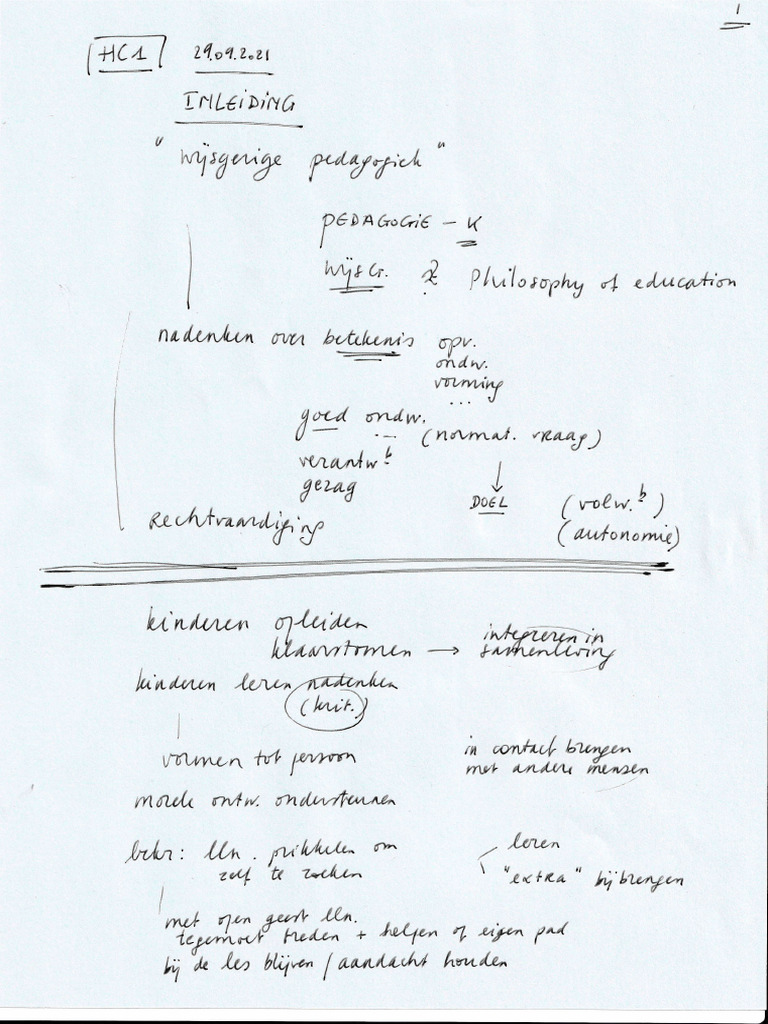 1
HC1 29.09.2021
INLEIDING
"wijsgerige pedagogiek"
PEDAGOGIE - K
WIJSG. Philosophy of education
nadenken over betekenis opv.
ondw.
vorming
...
goed ondw.
... (normat. vraag)
verantw^h
gezag
DOEL (volw.^h)
Rechtvaardiging (autonomie)
kinderen opleiden
klaarstomen → integreren in samenleving
kinderen leren nadenken
(krit.)
vormen tot persoon in contact brengen
met andere mensen
morele ontw. ondersteunen
lln. prikkelen om leren
zelf te zoeken "extra" bijbrengen
met open geest lln.
tegemoet treden + helpen of eigen pad
bij de les blijven / aandacht houden